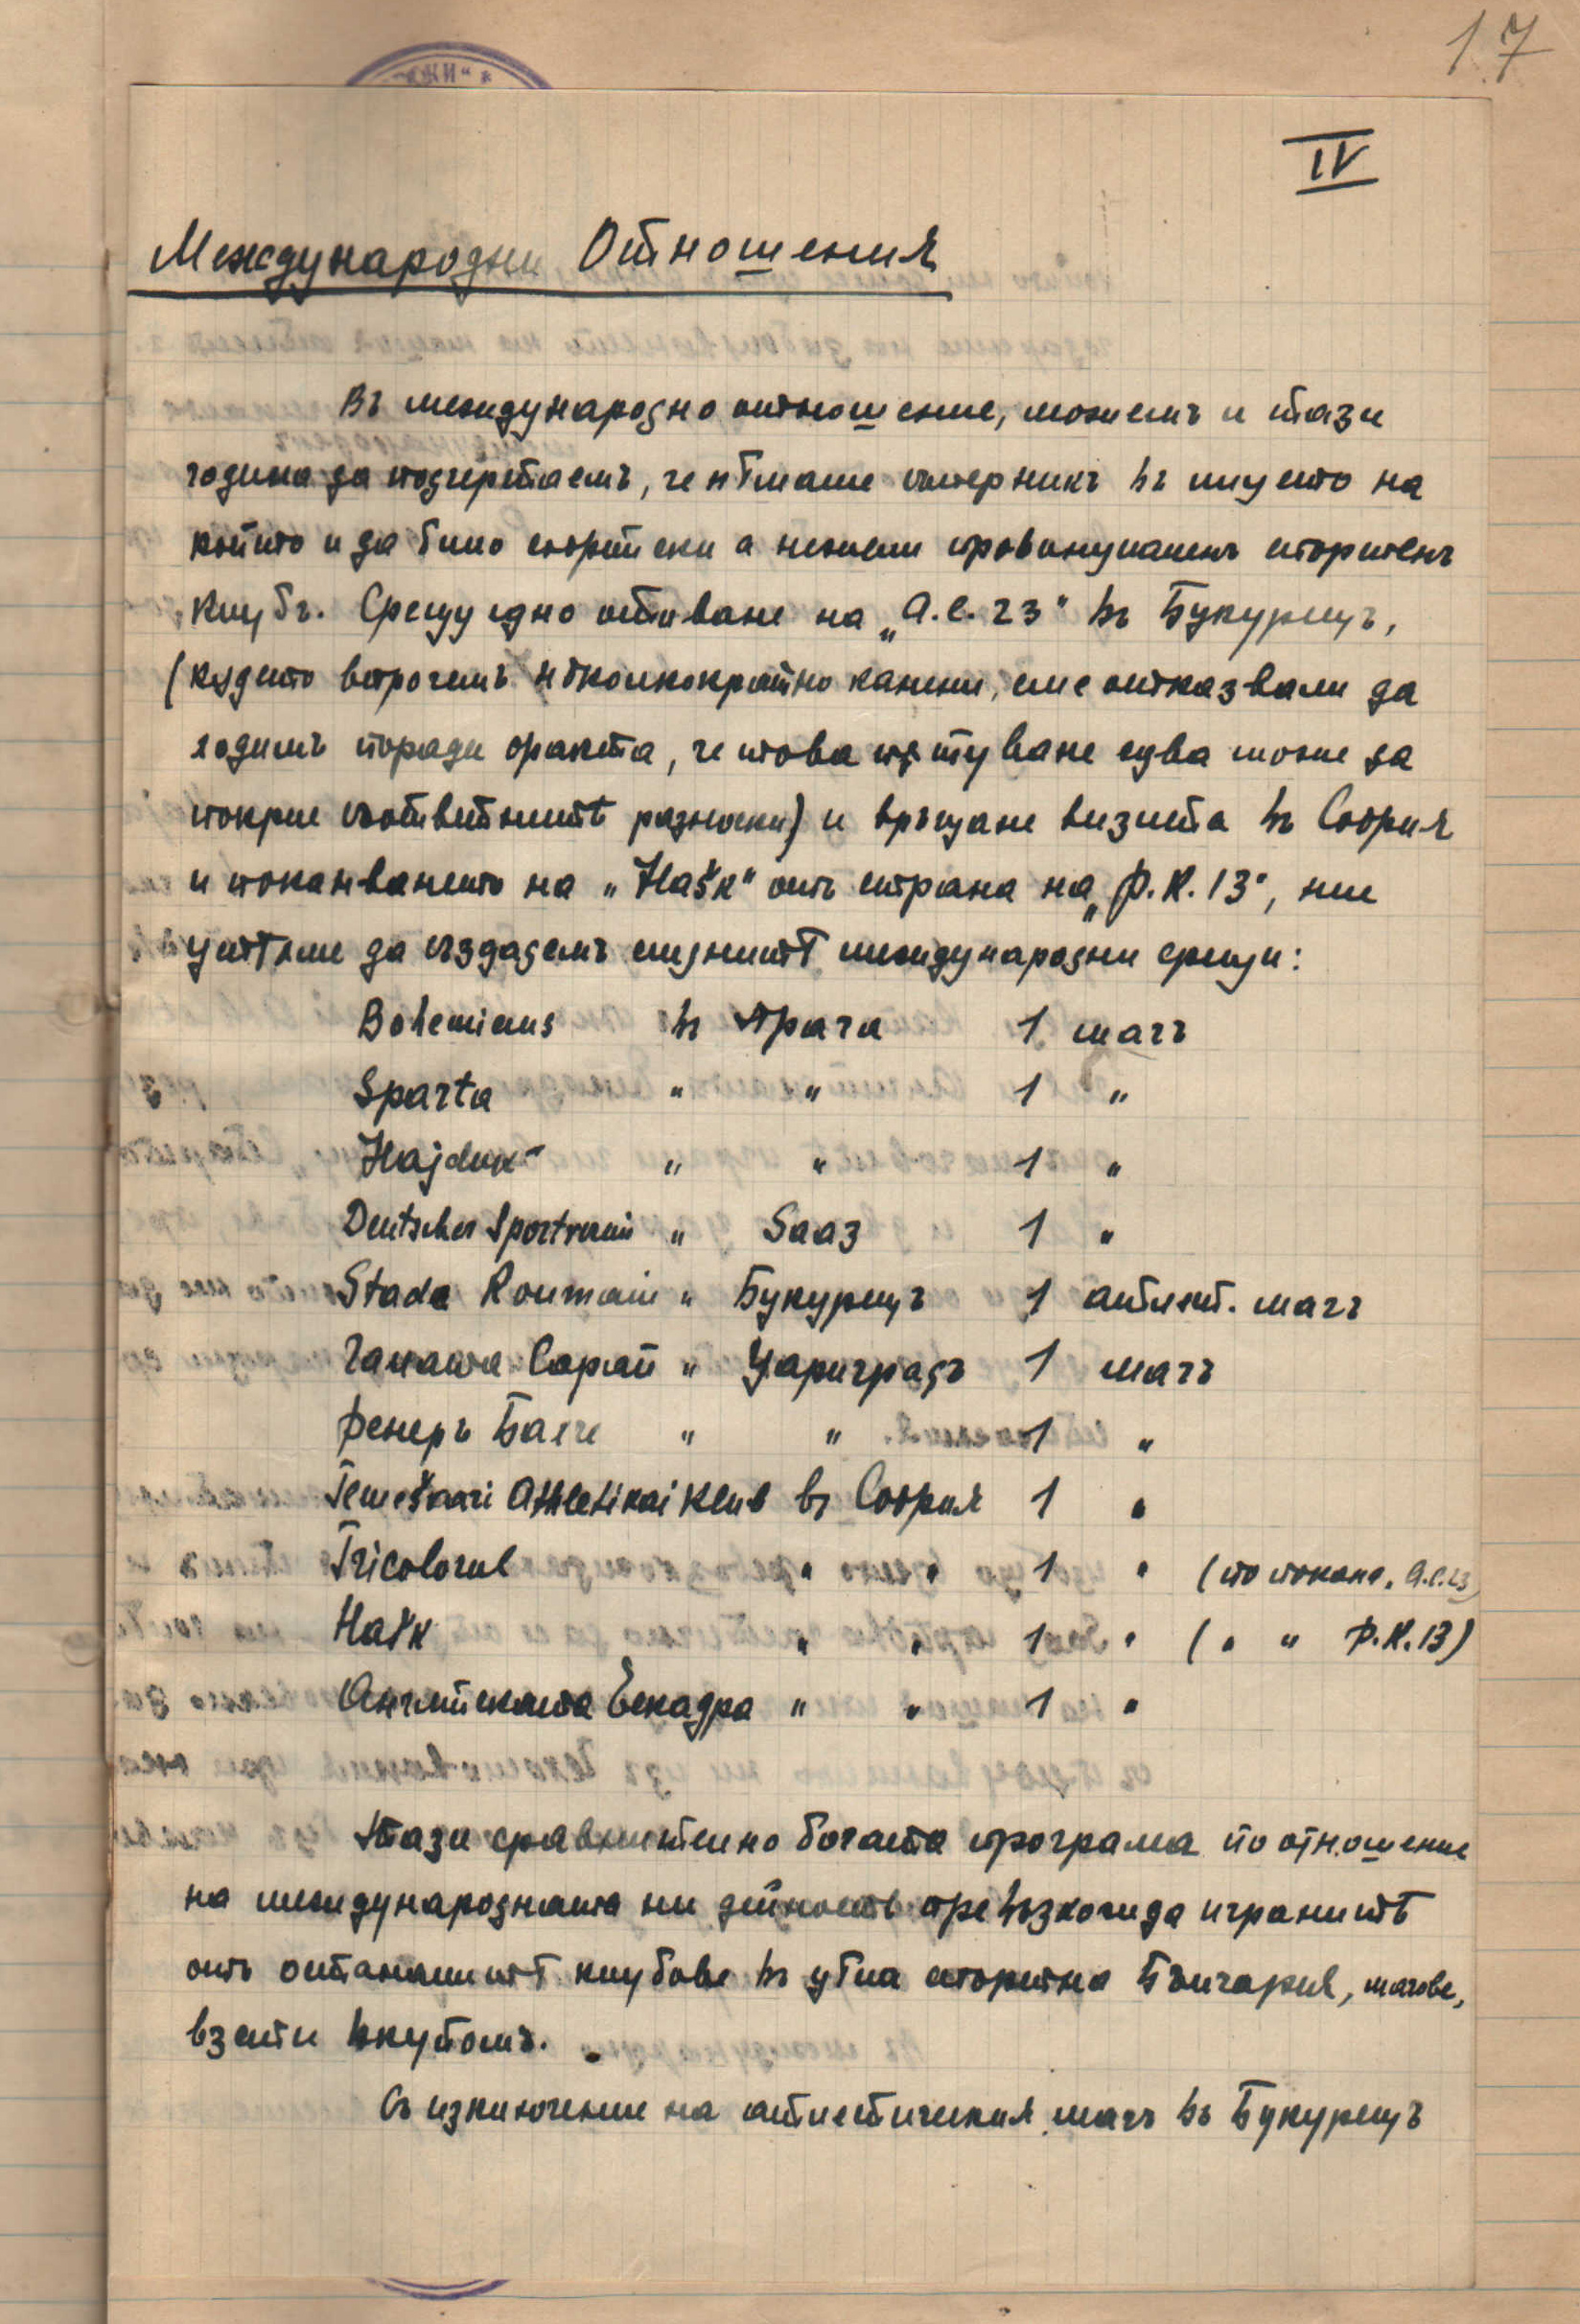 17
IV
Международни Отношения
Въ международно отношение, можемъ и тази
година да подчертаемъ, че нѣмаше съперникъ въ лицето на
който и да било софийски а нежели провинциаленъ спортенъ
клубъ. Срещу едно отиване на „А.С. 23" въ Букурещъ,
(кѫдето впрочемъ нѣколкократно канени, сме отказвали да
ходимъ поради факта, че това пѫтуване едва може да
покрие съответнитѣ разноски) и връщане визита въ София
и поканването на „Hašk" отъ страна на „Ф.К. 13", ние
успѣхме да създадемъ следнитѣ международни срещи:
Bohemians въ Прага 1 мачъ
Sparta " " 1 "
Hajduk " " 1 "
Deutscher Sportverein " Saaz 1 "
Stade Roumain " Букурещъ 1 атлет. мачъ
Галата Сарай " Цариградъ 1 мачъ
Фенеръ Бахче " " 1 "
Temešvari Athletikai Klub въ София 1 "
Tricolorul " " 1 " (по покана „А.С.23)
Hašk " " 1 " ( " " Ф.К.13)
Английската Ескадра " " 1 "
Тази сравнително богата програма по отношение
на международната ни дейность превъзхожда игранитѣ
отъ останалитѣ клубове въ цѣла спортна България, мачове,
взети вкупомъ.
Съ изключение на атлетическия мачъ въ Букурещъ